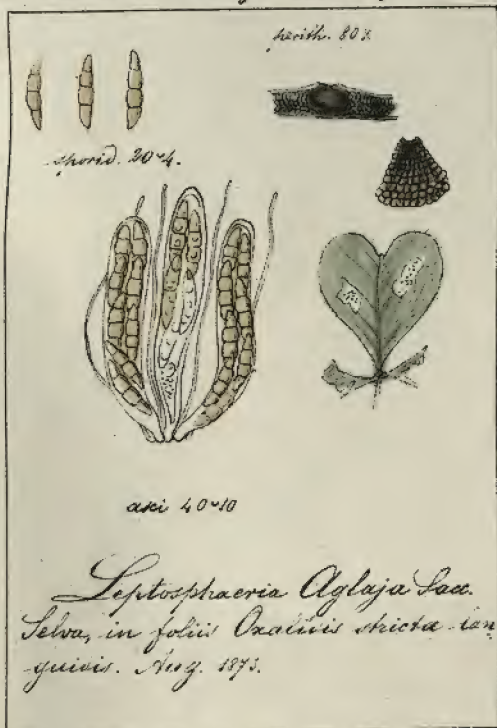 perith. 80 ⁊.
sporid. 20~4.
asci 40~10
Leptosphaeria Aglaja Sacc.
Selva, in foliis Oxalidis stricta lan
guidis. Aug. 1873.